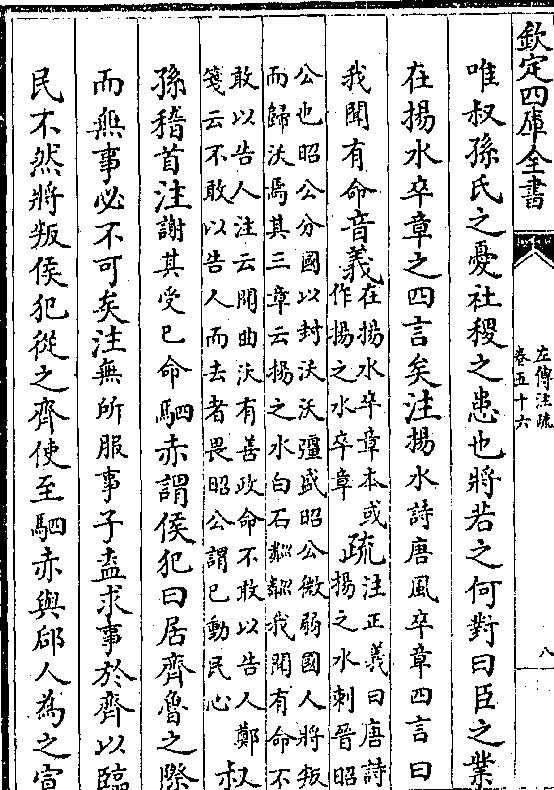 欽定四庫全書
左傳注疏
卷五十六
八
唯叔孫氏之憂社稷之患也將若之何對曰臣之業
在揚水卒章之四言矣注揚水詩唐風卒章四言曰
我聞有命音義在揚水卒章本或
作揚之水卒章疏注正義曰唐詩
揚之水刺晉昭
公也昭公分國以封沃沃彊盛昭公微弱國人將叛
而歸沃焉其三章云揚之水白石粼粼我聞有命不
敢以告人注云聞曲沃有善政命不敢以告人鄭
箋云不敢以告人而去者畏昭公謂已動民心叔
孫稽首注謝其受已命駟赤謂侯犯曰居齊魯之際
而無事必不可矣注無所服事子盍求事於齊以臨
民不然將叛侯犯從之齊使至駟赤與郈人為之宣